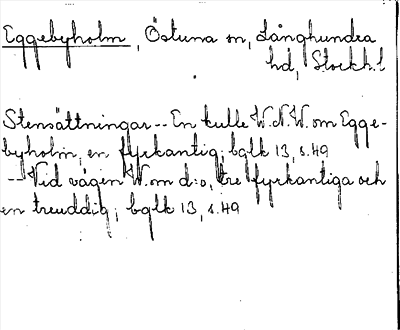 Eggebyholm, Östuna sn, Långhundra
hd, Stockh.l
Stensättningar -- En kulle V.N.V. om Egge-
byholm, en fyrkantig; bglk 13, s. 49
-- Vid vägen V. om d:o, tre fyrkantiga och
en treuddig; bglk 13, s. 49